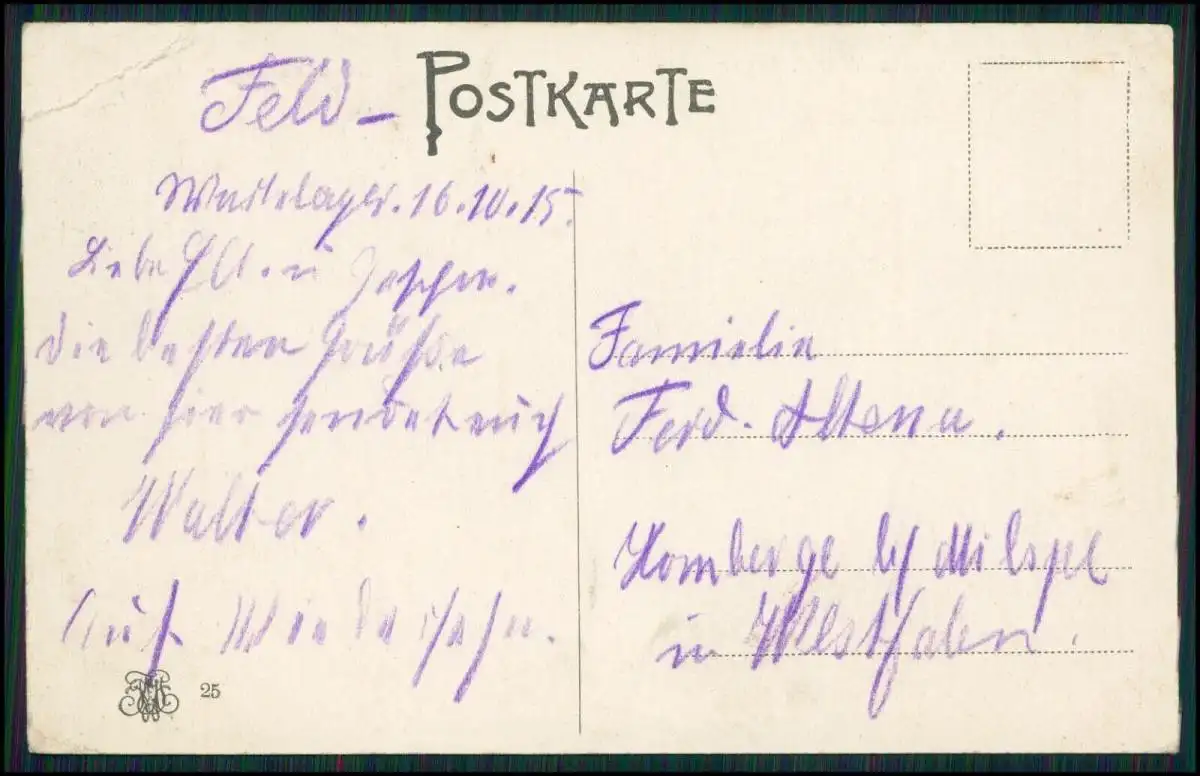 Feld-
POSTKARTE
Wartelager. 16.10.15.
Liebe Elt. u
die besten Grüße
von hier sendet euch
Walter.
Auf Wiedersehn.
25
Familie
Ferd. Altena.
Homberge by Milspe
in Westfalen.